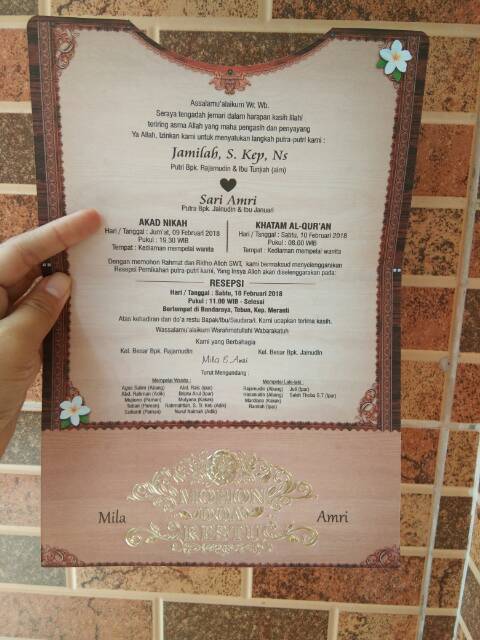 Assalamu'alaikum Wr. Wb.
Seraya tengadah jemari dalam harapan kasih Illahi
teriring asma Allah yang maha pengasih dan penyayang
Ya Allah, Izinkan kami untuk menyatukan langkah putra-putri kami :
Jamilah, S. Kep, Ns
Putri Bpk. Rajamudin & Ibu Tunjah (alm)
Sari Amri
Putra Bpk. Jainudin & Ibu Januari
AKAD NIKAH
Hari / Tanggal : Jum'at, 09 Februari 2018
Pukul : 19.30 WIB
Tempat : Kediaman mempelai wanita
KHATAM AL-QUR'AN
Hari / Tanggal : Sabtu, 10 Februari 2018
Pukul : 08.00 WIB
Tempat : Kediaman mempelai wanita
Dengan memohon Rahmat dan Ridho Alloh SWT, kami bermaksud menyelenggarakan
Resepsi Pernikahan putra-putri kami, Yang Insya Alloh akan diselenggarakan pada:
RESEPSI
Hari / Tanggal : Sabtu, 10 Februari 2018
Pukul : 11.00 WIB - Selesai
Bertempat di Bandaraya, Teban, Kep. Meranti
Atas kehadiran dan do'a restu Bapak/Ibu/Saudara/i. Kami ucapkan terima kasih.
Wassalamu'alaikum Warahmatullahi Wabarakatuh
Kami yang Berbahagia
Kel. Besar Bpk. Rajamudin
Kel. Besar Bpk. Jainudin
Mila & Amri
Turut Mengundang :
Mempelai Wanita :
Agus Salim (Abang)
Abd. Rahman (Adik)
Abd. Rais (Ipar)
Mulyana (Kakek)
Nurul Hatimah (Adik)
Mempelai Laki-laki :
Rajamudin (Abang)
Hasanudin (Abang)
Mardiana (Kakak)
Ramlah (Ipar)
Juli (Ipar)
MOHON
DOA
RESTU
Mila
Amri